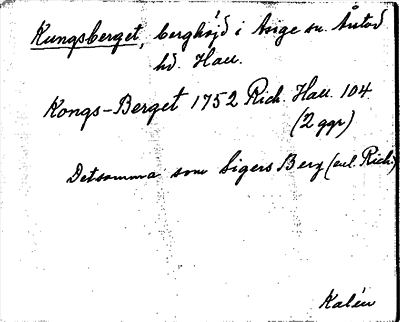 Kungsberget, berghöjd i Asige sn. Årstad
hd. Hall.
Kongs-Berget 1752 Rich. Hall. 104
(2 ggr)
Detsamma som Sigers Berg (enl. Rich)
Kalén